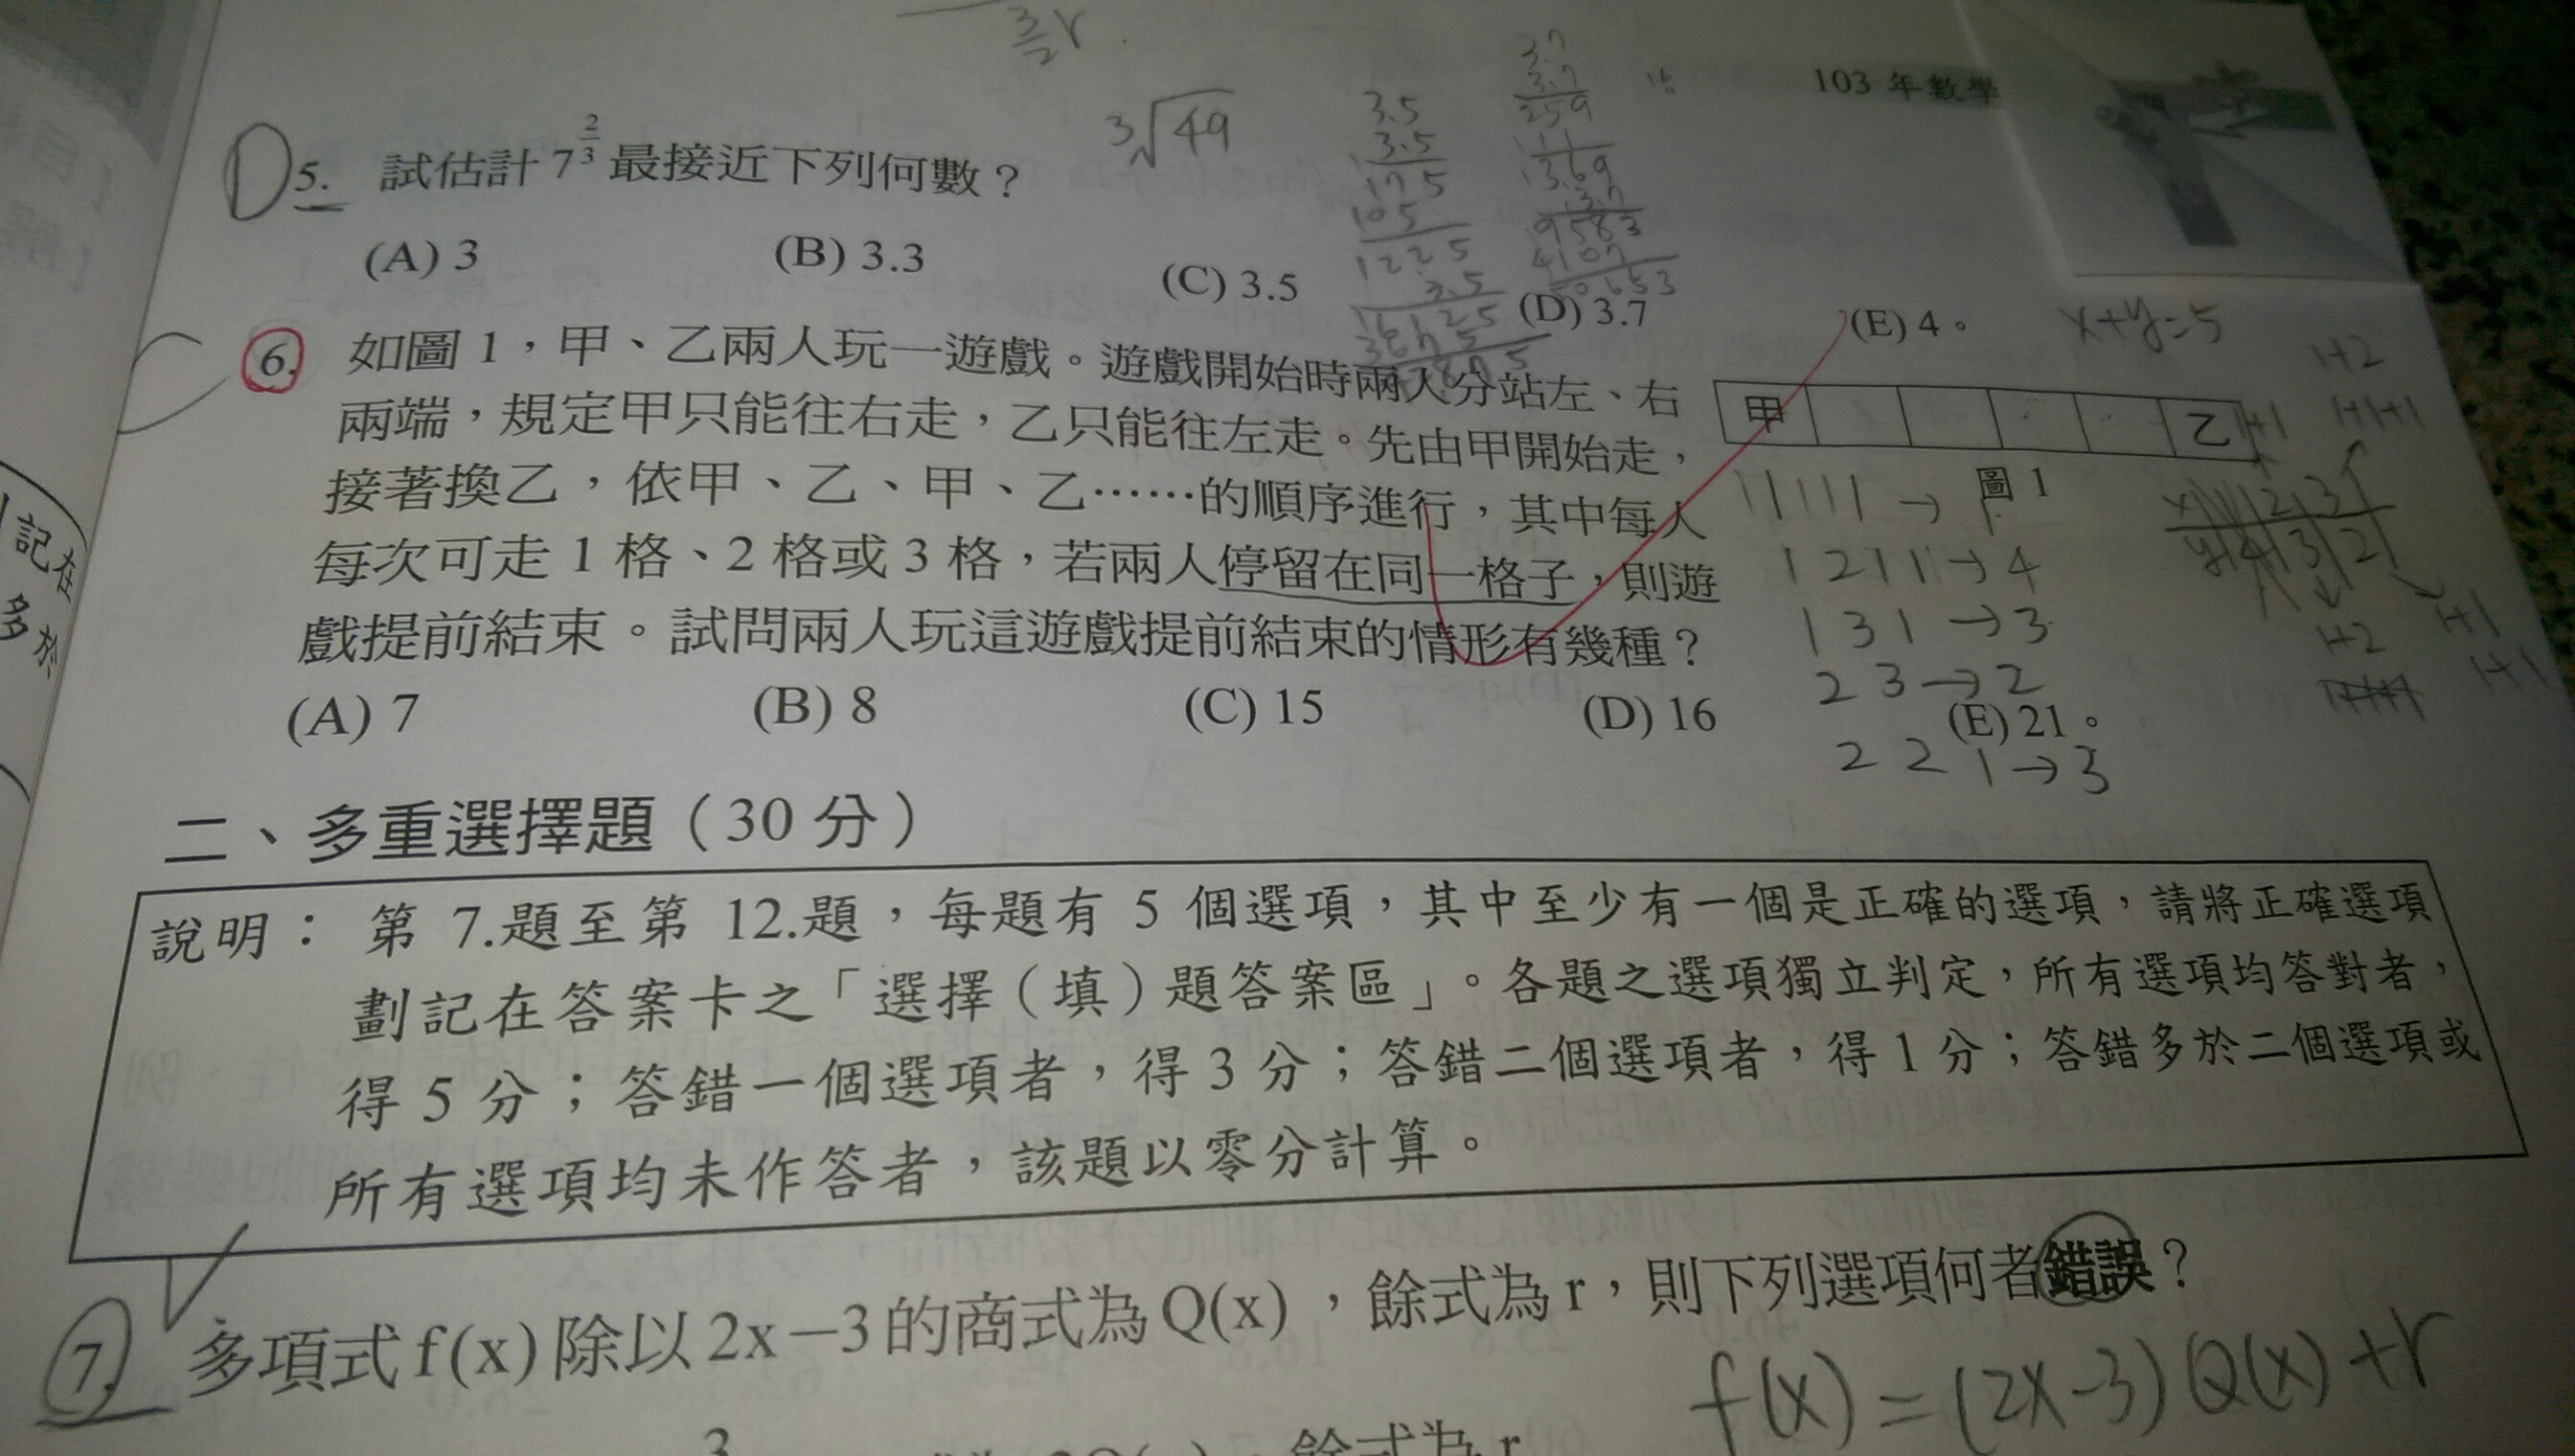 3/2 r
103 年數學
D 5. 試估計 7^(2/3) 最接近下列何數？
³√49
3.5
3.5
175
105
1225
3.5
3.7
3.7
259
111
1369
3.7
9583
4107
50653
(A) 3 (B) 3.3 (C) 3.5 (D) 3.7 (E) 4。
x+y=5
1+2
1+1+1
6. 如圖 1，甲、乙兩人玩一遊戲。遊戲開始時兩人分站左、右
兩端，規定甲只能往右走，乙只能往左走。先由甲開始走，
接著換乙，依甲、乙、甲、乙……的順序進行，其中每人
每次可走 1 格、2 格或 3 格，若兩人停留在同一格子，則遊
戲提前結束。試問兩人玩這遊戲提前結束的情形有幾種？
甲 乙
圖 1
1 1 1 1 1 → 1
1 2 1 1 → 4
1 3 1 → 3
2 3 → 2
2 2 1 → 3
x 1 2 3
y 4 3 2
1+2
1+1
1+1
(A) 7 (B) 8 (C) 15 (D) 16 (E) 21。
二、多重選擇題（30 分）
說明：第 7.題至第 12.題，每題有 5 個選項，其中至少有一個是正確的選項，請將正確選項
劃記在答案卡之「選擇（填）題答案區」。各題之選項獨立判定，所有選項均答對者，
得 5 分；答錯一個選項者，得 3 分；答錯二個選項者，得 1 分；答錯多於二個選項或
所有選項均未作答者，該題以零分計算。
7. 多項式 f(x) 除以 2x－3 的商式為 Q(x)，餘式為 r，則下列選項何者錯誤？
f(x) = (2x-3) Q(x) + r
記在
多於